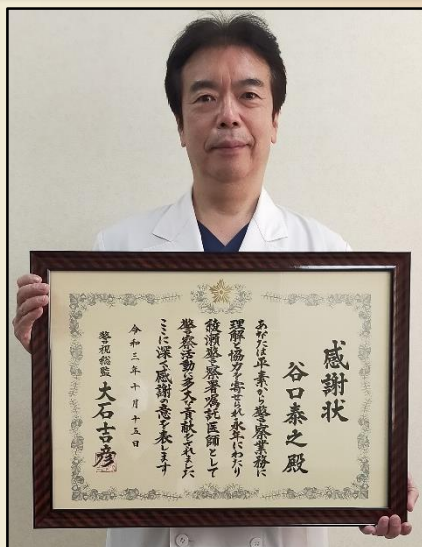 感謝状
谷口泰之殿
あなたは平素から警察業務に
理解と協力を寄せられ永年にわたり
綾瀬警察署嘱託医師として
警察活動に多大な貢献をされました
ここに深く感謝の意を表します
令和三年十月十五日
警視総監 大石吉彦